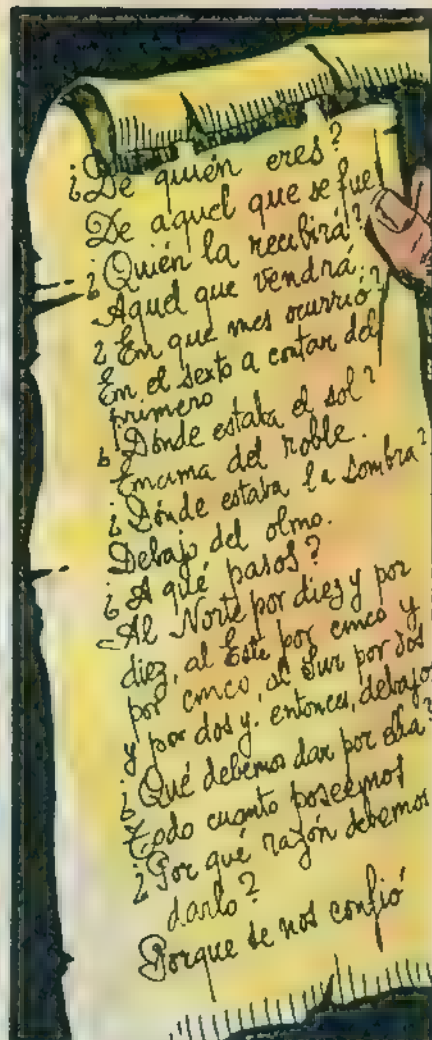 ¿De quién eres?
De aquel que se fue
¿Quién la recibirá?
Aquel que vendrá.
¿En que mes ocurrió?
En el sexto a contar del
primero
¿Dónde estaba el sol?
Encima del roble.
¿Dónde estaba la sombra?
Debajo del olmo.
¿A qué pasos?
Al Norte por diez y por
diez, al Este por cinco y
por cinco, al Sur por dos
y por dos y. entonces, debajo
¿Qué debemos dar por ella?
Todo cuanto poseemos
¿Por qué razón debemos
darlo?
Porque se nos confió